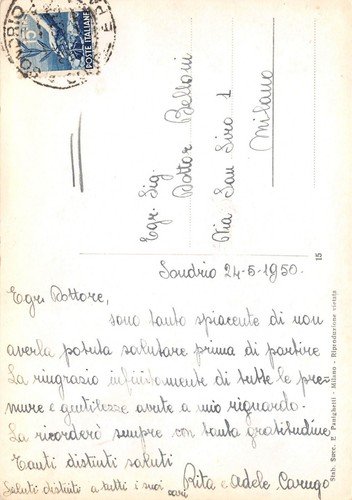 SONDRIO
5
POSTE ITALIANE
Egr. Sig
Dottor Belloni
Via San Siro 1
Milano
15
Stab. Succ. E. Panighetti - Milano - Riproduzione vietata
Sondrio 24-5-1950.
Egr. Dottore,
sono tanto spiacente di non
averla potuta salutare prima di partire
La ringrazio infinitamente di tutte le pre=
mure e gentilezze avute a mio riguardo.
La ricorderò sempre con tanta gratitudine
Tanti distinti saluti
Rita e Adele Carugo
Saluti distinti a tutti i suoi cari